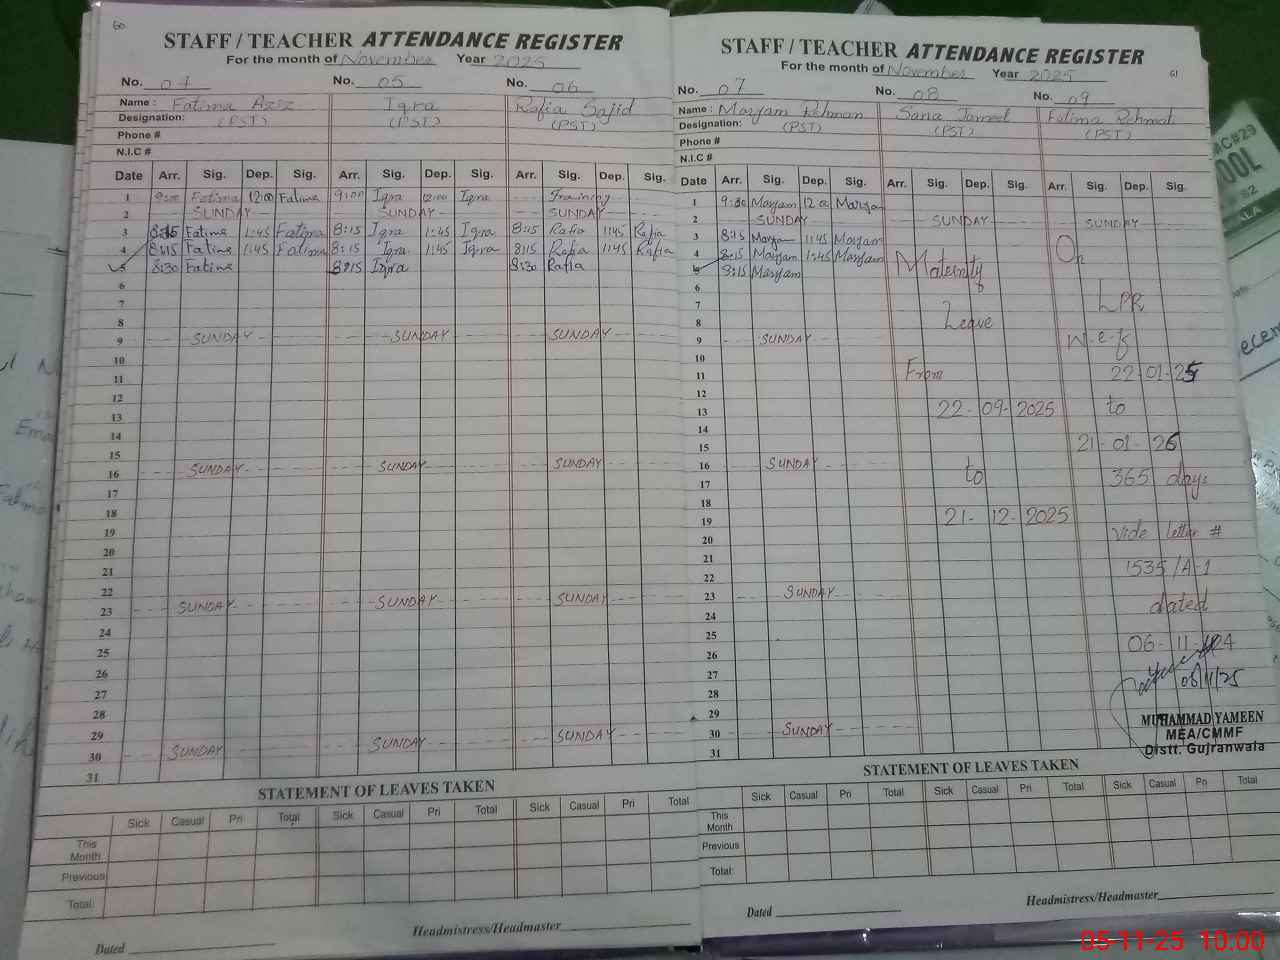 60
STAFF / TEACHER ATTENDANCE REGISTER
For the month of November Year 2025
No. 04 No. 05 No. 06
Name : Fatima Aziz Iqra Rafia Sajid
Designation: (PST) (PST) (PST)
Phone #
N.I.C #
Date Arr. Sig. Dep. Sig. Arr. Sig. Dep. Sig. Arr. Sig. Dep. Sig.
1 9:00 Fatima 12:00 Fatima 9:00 Iqra 12:00 Iqra Training
2 SUNDAY SUNDAY SUNDAY
3 8:15 Fatima 1:45 Fatima 8:15 Iqra 1:45 Iqra 8:15 Rafia 1:45 Rafia
4 8:15 Fatima 1:45 Fatima 8:15 Iqra 1:45 Iqra 8:15 Rafia 1:45 Rafia
5 8:30 Fatima 8:15 Iqra 8:30 Rafia
6
7
8
9 SUNDAY SUNDAY SUNDAY
10
11
12
13
14
15
16 SUNDAY SUNDAY SUNDAY
17
18
19
20
21
22
23 SUNDAY SUNDAY SUNDAY
24
25
26
27
28
29
30 SUNDAY SUNDAY SUNDAY
31
STATEMENT OF LEAVES TAKEN
Sick Casual Pri Total Sick Casual Pri Total Sick Casual Pri Total
This Month
Previous
Total:
Dated Headmistress/Headmaster
61
STAFF / TEACHER ATTENDANCE REGISTER
For the month of November Year 2025
No. 07 No. 08 No. 09
Name : Maryam Rehman Sana Jameel Fatima Rehmat
Designation: (PST) (PST) (PST)
Phone #
N.I.C #
Date Arr. Sig. Dep. Sig. Arr. Sig. Dep. Sig. Arr. Sig. Dep. Sig.
1 Maryam Maryam
2 SUNDAY SUNDAY SUNDAY
3 8:15 Maryam 1:45 Maryam
4 8:15 Maryam 1:45 Maryam Maternity On
5 8:15 Maryam
6
7 LPR
8 Leave
9 SUNDAY w.e.f
10
11 From 22-01-25
12
13 22-09-2025 to
14
15 21-01-26
16 SUNDAY
17 to 365 days
18
19 21-12-2025
20 Vide letter #
21
22 1535/A-1
23 SUNDAY
24 dated
25
26 06-11-24
27
28 05/11/25
29
30 SUNDAY
31
MUHAMMAD YAMEEN
MEA/CMMF
Distt. Gujranwala
STATEMENT OF LEAVES TAKEN
Sick Casual Pri Total Sick Casual Pri Total Sick Casual Pri Total
This Month
Previous
Total:
Dated Headmistress/Headmaster
05-11-25 10:00